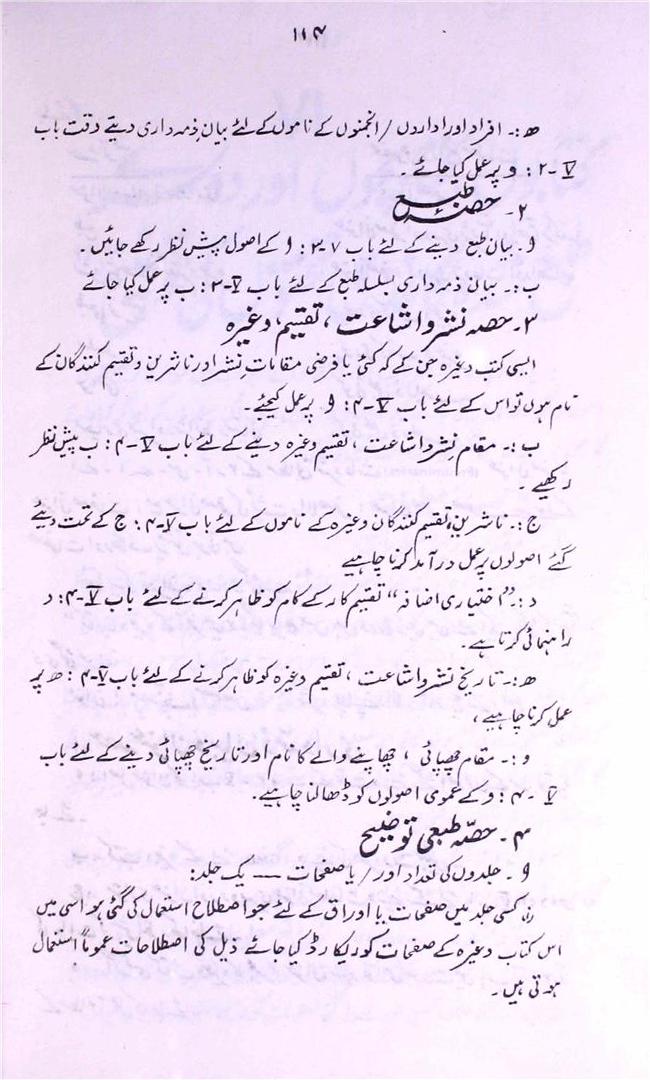 ۱۱۴
ھ:۔ افراد اور اداروں / انجمنوں کے ناموں کے لئے بیان ذمہ داری دیتے وقت باب
V-۲: و پر عمل کیا جائے۔
۲۔ حصہ طبع
و۔ بیان طبع دینے کے لئے باب ۷-۲: و کے اصول پیش نظر رکھے جائیں۔
ب:۔ بیان ذمہ داری سلسلہ طبع کے لئے باب V-۳: ب پر عمل کیا جائے
۳۔ حصہ نشر و اشاعت، تقسیم وغیرہ
ایسی کتب وغیرہ جن کے کہ کئی یا فرضی مقامات نشر اور ناشرین و تقسیم کنندگان کے
نام ہوں تو اس کے لئے باب V-۴: و پر عمل کیجئے۔
ب:۔ مقام نشر و اشاعت، تقسیم وغیرہ دینے کے لئے باب V-۴: ب پیش نظر
رکھیے۔
ج:۔ ناشرین، تقسیم کنندگان وغیرہ کے ناموں کے لئے باب V-۴: ج کے تحت دیئے
گئے اصولوں پر عمل در آمد کرنا چاہیے
د:۔ "اختیاری اضافہ" تقسیم کار کے کام کو ظاہر کرنے کے لئے باب V-۴: د
راہنمائی کرتا ہے۔
ھ:۔ تاریخ نشر و اشاعت، تقسیم وغیرہ کو ظاہر کرنے کے لئے باب V-۴: ھ پر
عمل کرنا چاہیے،
و:۔ مقام چھپائی، چھاپنے والے کا نام اور تاریخ چھپائی دینے کے لئے باب
V-۴: و کے عمومی اصولوں کو ڈھالنا چاہیے۔
۴۔ حصّہ طبعی توضیح
و۔ جلدوں کی تعداد اور / یا صفحات — یک جلد:
کسی جلد میں صفحات یا اوراق کے لئے جو اصطلاح استعمال کی گئی ہو اسی میں
اس کتاب وغیرہ کے صفحات کو ریکارڈ کیا جائے ذیل کی اصطلاحات عموماً استعمال
ہوتی ہیں۔